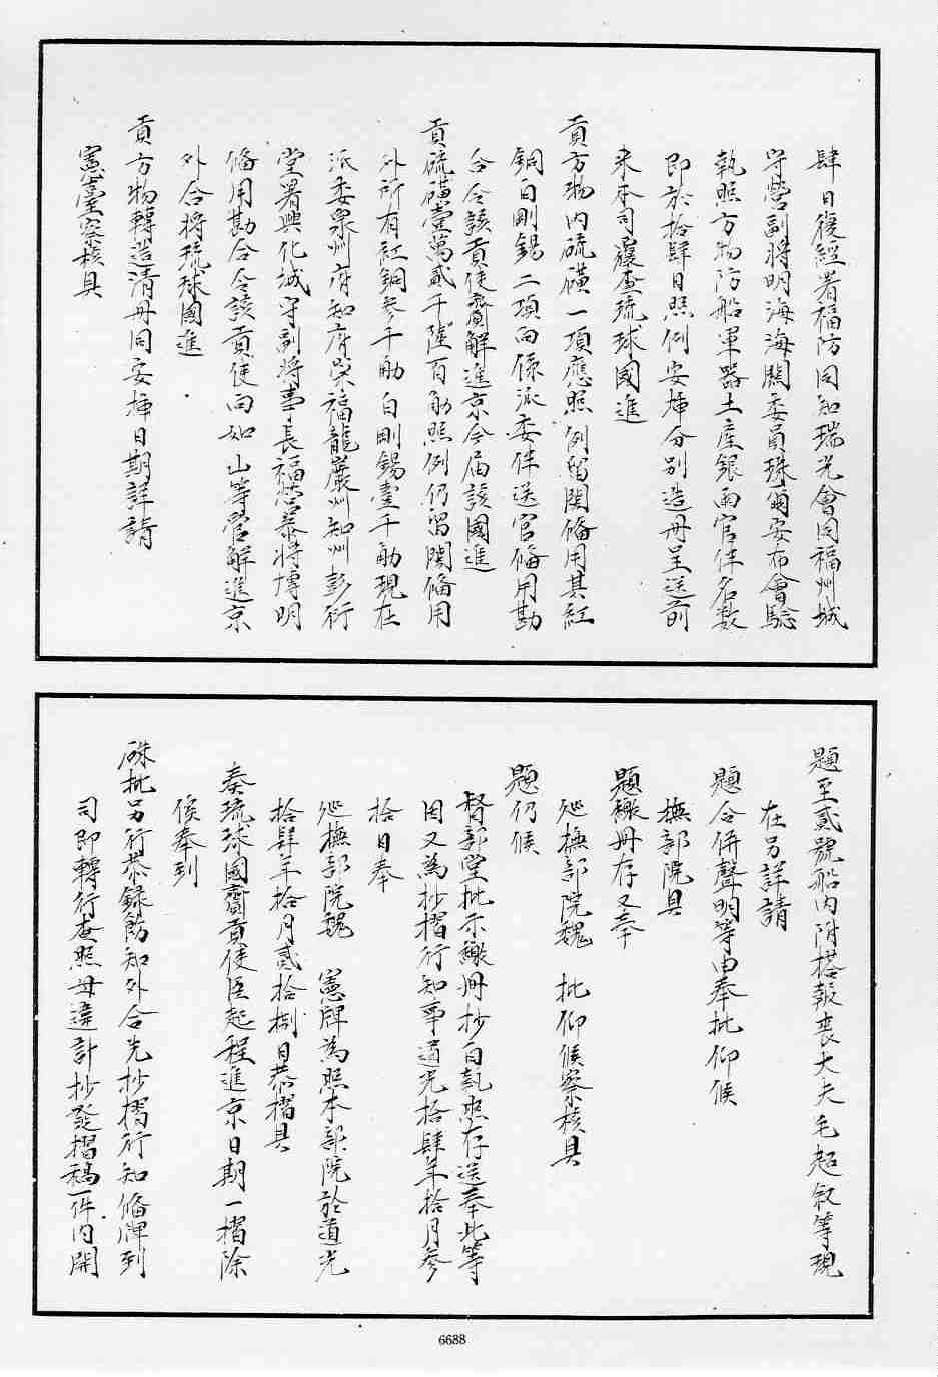 肆日復經署福防同知瑞光會同福州城
守營副將明海海關委員珠爾安布會驗
執照方物防船軍器土產銀兩官伴名數
即於拾肆日照例安插分別造冊呈送前
來本司覆查琉球國進
貢方物內硫磺一項應照例留閩備用其紅
銅白剛錫二項向係派委伴送官備用勘
合令該貢使齎解進京今屆該國進
貢硫磺壹萬貳千陸百觔照例仍留閩備用
外所有紅銅參千觔白剛錫壹千觔現在
派委泉州府知府崇福龍巖州知州彭衍
堂署興化城守副將事長福營參將博明
備用勘合令該貢使向如山等管解進京
外合將琉球國進
貢方物轉造清冊同安插日期詳請
憲臺察核具
題至貳號船內附搭報喪大夫毛超叙等現
在另詳請
題合併聲明等由奉批仰候
撫部院具
題繳冊存又奉
巡撫部院魏 批仰候察核具
題仍候
督部堂批示繳冊抄白執照存送奉此等
因又為抄摺行知事道光拾肆年拾月參
拾日奉
巡撫部院魏 憲牌為照本部院於道光
拾肆年拾月貳拾捌日恭摺具
奏琉球國齎貢使臣起程進京日期一摺除
俟奉到
硃批另行恭錄飭知外合先抄摺行知備牌到
司即轉行查照毋違計抄發摺稿一件內開
6688